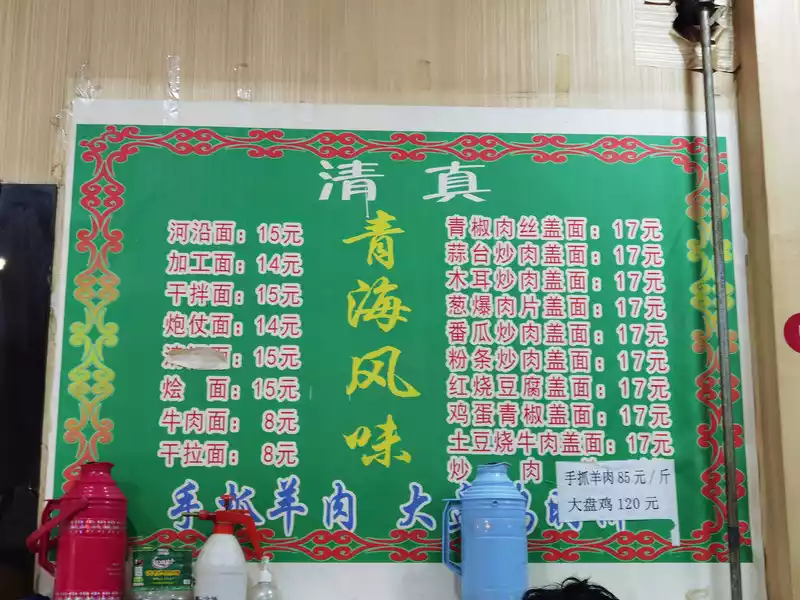 清真
青海风味
河沿面：15元
加工面：14元
干拌面：15元
炮仗面：14元
面：15元
烩 面：15元
牛肉面： 8元
干拉面： 8元
青椒肉丝盖面：17元
蒜台炒肉盖面：17元
木耳炒肉盖面：17元
葱爆肉片盖面：17元
番瓜炒肉盖面：17元
粉条炒肉盖面：17元
红烧豆腐盖面：17元
鸡蛋青椒盖面：17元
土豆烧牛肉盖面：17元
炒 肉
手抓羊肉85元/斤
大盘鸡120元
手抓羊肉 大